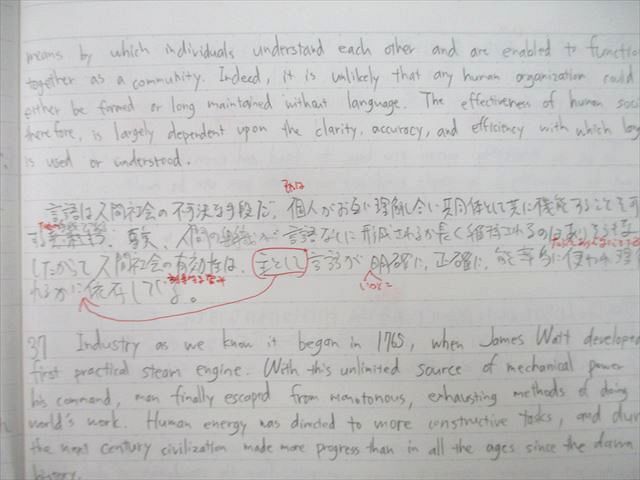 means by which individuals understand each other and are enabled to function
together as a community. Indeed, it is unlikely that any human organization could
either be formed or long maintained without language. The effectiveness of human
therefore, is largely dependent upon the clarity, accuracy, and efficiency with which
is used or understood.
それは
言語は人間社会の不可決な手段だ。個人がお互に理解し合い共同体として共に機能することを可
する 事実、人間の 言語なしに形成されるか長く維持される
したがって人間社会の有効性は、主として言語が明確に、正確に、能率的に使われ理
れるかに依存している。
37 Industry as we know it began in 1765, when James Watt developed
first practical steam engine. With this unlimited source of mechanical power
his command, man finally escaped from monotonous, exhausting methods of doing
world's work. Human energy was directed to more constructive tasks, and
the next century civilization made more progress than in all the ages since the dawn
history.